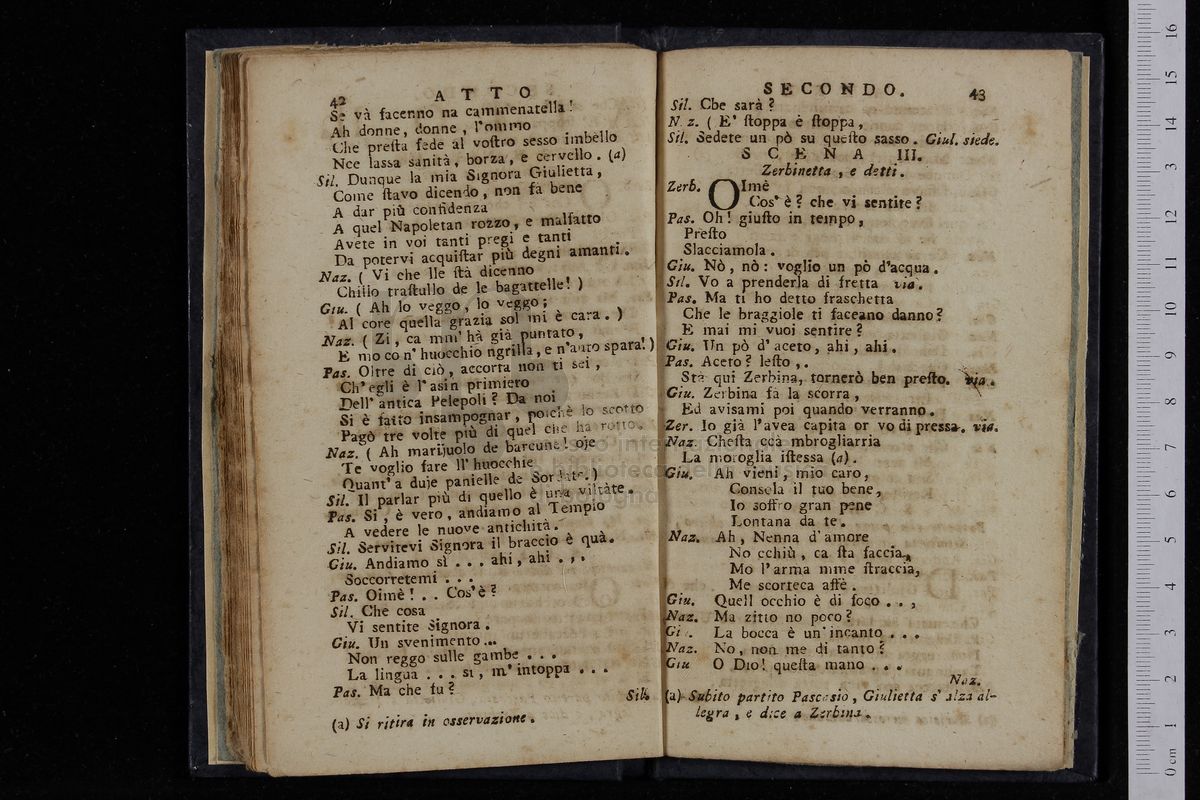 42 ATTO
Se và facenno na cammenatella!
Ah donne, donne, l'ommo
Che preſta fede al voſtro sesso imbello
Nce lassa sanità, borza, e cervello. (a)
Sil. Dunque la mia Signora Giulietta,
Come ſtavo dicendo, non fa bene
A dar più confidenza
A quel Napoletan rozzo, e malfatto
Avete in voi tanti pregi e tanti
Da potervi acquiſtar più degni amanti.
Naz. ( Vi che lle ſtà dicenno
Chillo traſtullo de le bagattelle! )
Giu. ( Ah lo veggo, lo veggo;
Al core quella grazia sol mi è cara. )
Naz. ( Zi, ca mm' hà già puntato,
E mo co n' huocchio ngrilla, e n'auto spara! )
Pas. Oltre di ciò, accorta non ti sei,
Ch' egli è l'asin primiero
Dell' antica Pelepoli? Da noi
Si è fatto insampognar, poichè lo scotto
Pagò tre volte più di quel che ha rotto.
Naz. ( Ah marijuolo de barcune! oje
Te voglio fare ll' huocchie
Quant' a duje panielle de )
Sil. Il parlar più di quello è una viltate.
Pas. Si, è vero, andiamo al Tempio
A vedere le nuove antichità.
Sil. Servitevi Signora il braccio è quà.
Giu. Andiamo sì . . . ahi, ahi . . .
Soccorretemi . . .
Pas. Oimè! . . Cos' è?
Sil. Che cosa
Vi sentite Signora.
Giu. Un svenimento...
Non reggo sulle gambe . . .
La lingua . . . si, m' intoppa . . .
Pas. Ma che fu?
Sil.
(a) Si ritira in osservazione.
SECONDO. 43
Sil. Che sarà?
Naz. ( E' ſtoppa è ſtoppa,
Sil. Sedete un pò su queſto sasso. Giul. siede.
SCENA III.
Zerbinetta, e detti.
Zerb. OImè
Cos' è? che vi sentite?
Pas. Oh! giuſto in tempo,
Preſto
Slacciamola.
Giu. Nò, nò: voglio un pò d'acqua.
Sil. Vo a prenderla di fretta via.
Pas. Ma ti ho detto fraschetta
Che le braggiole ti faceano danno?
E mai mi vuoi sentire?
Giu. Un pò d' aceto, ahi, ahi.
Pas. Aceto? leſto,.
Sta qui Zerbina, tornerò ben preſto. via.
Giu. Zerbina fa la scorra,
Ed avisami poi quando verranno.
Zer. Io già l'avea capita or vo di pressa. via.
Naz. Cheſta ccà mbrogliarria
La moroglia iſtessa (a).
Giu. Ah vieni, mio caro,
Consola il tuo bene,
Io soffro gran pene
Lontana da te.
Naz. Ah, Nenna d'amore
No cchiù, ca ſta faccia,
Mo l'arma mme ſtraccia,
Me scorteca affè.
Giu. Quell occhio è di foco . . ,
Naz. Ma zitto no poco?
Giu. La bocca è un' incanto . . .
Naz. No, non me di tanto?
Giu O Dio! queſta mano . . .
Naz.
(a) Subito partito Pascasio, Giulietta s' alza al-
legra, e dice a Zerbina.